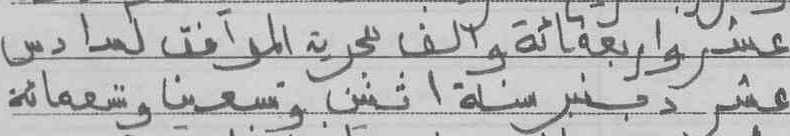 عشر واربعمائة والف هجرية الموافق لسادس
عشر دجنبر سنة اثنين وتسعين وتسعمائة